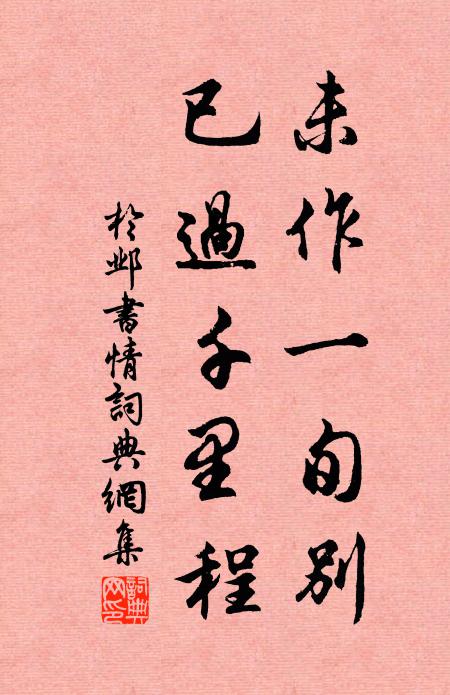 未作一旬别
已過千里程
於邺書情詞典網集
詞典網印